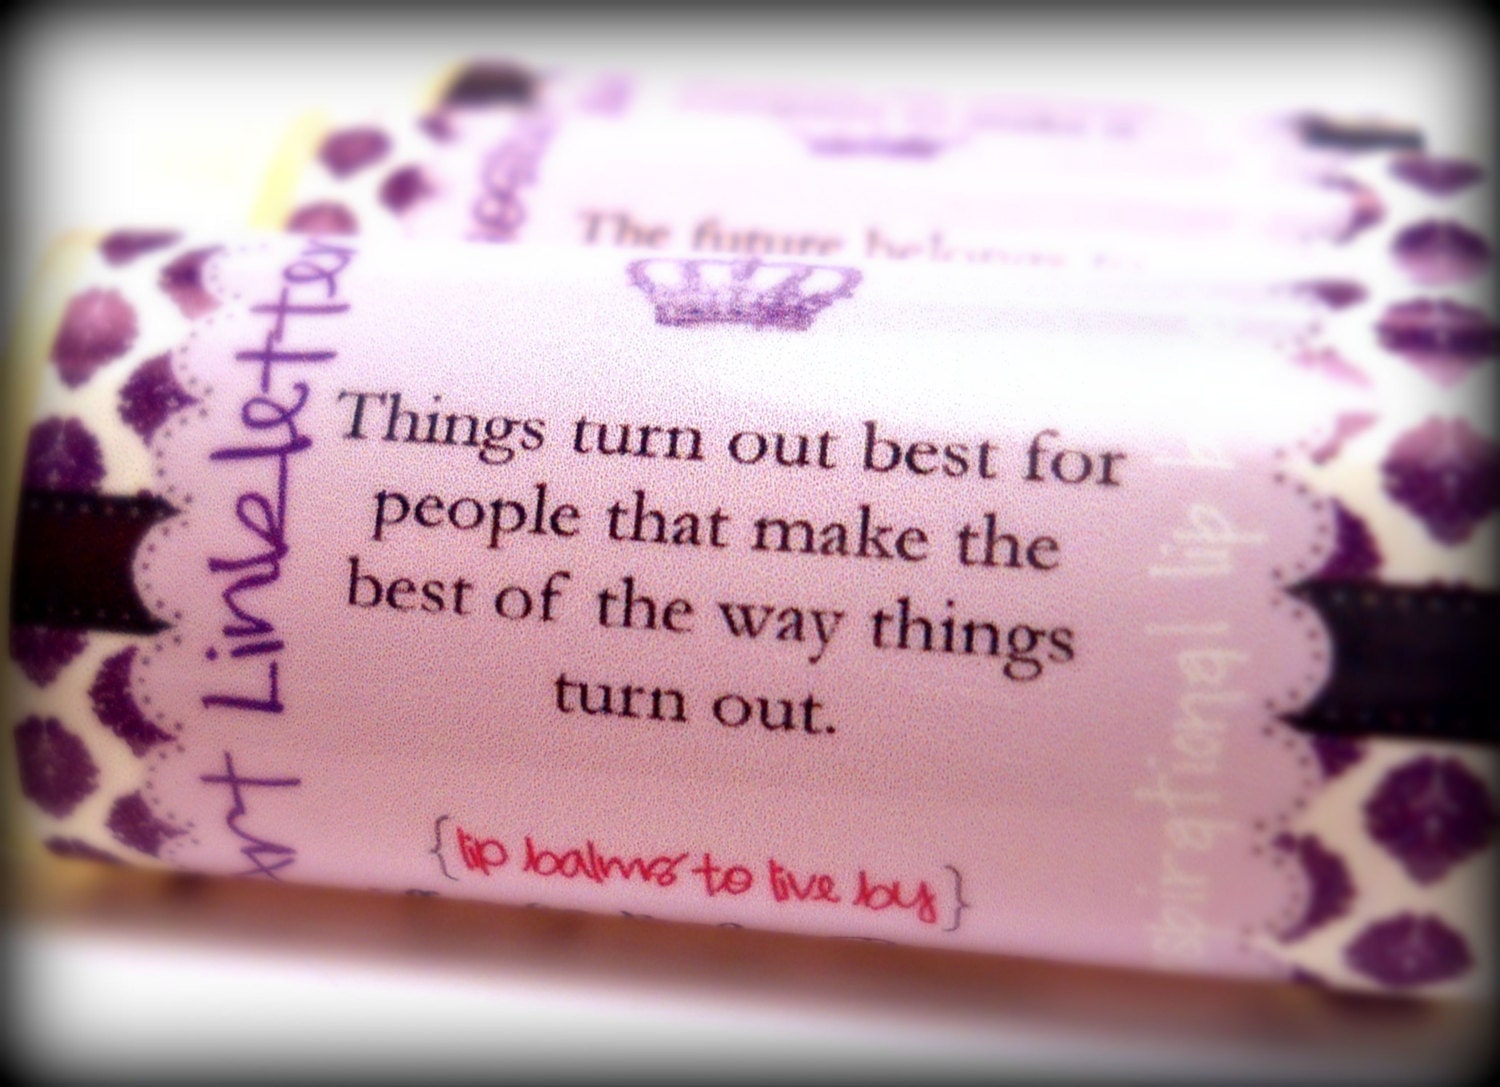 The future belongs to
Things turn out best for
people that make the
best of the way things
turn out.
{lip balms to live by}
Art Linkletter
spirational lip